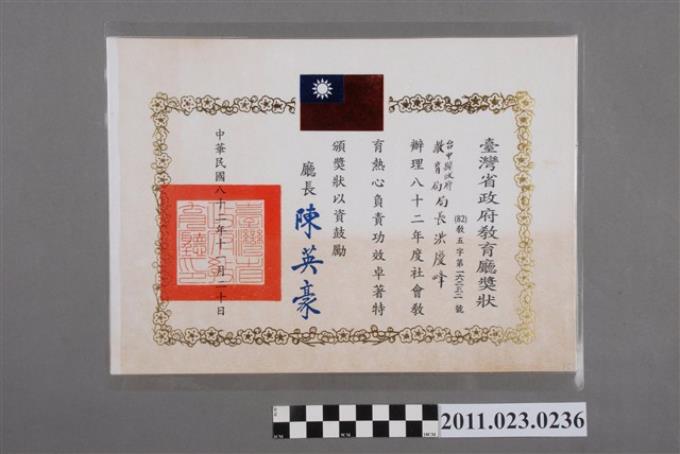 臺灣省政府教育廳獎狀
(82)教五字第一六三五二號
台中縣政府
教育局局長洪慶峰
辦理八十二年度社會教
育熱心負責功效卓著特
頒獎狀以資鼓勵
廳長 陳英豪
中華民國八十二年十一月二十日
臺灣省政府教育廳印
2011.023.0236